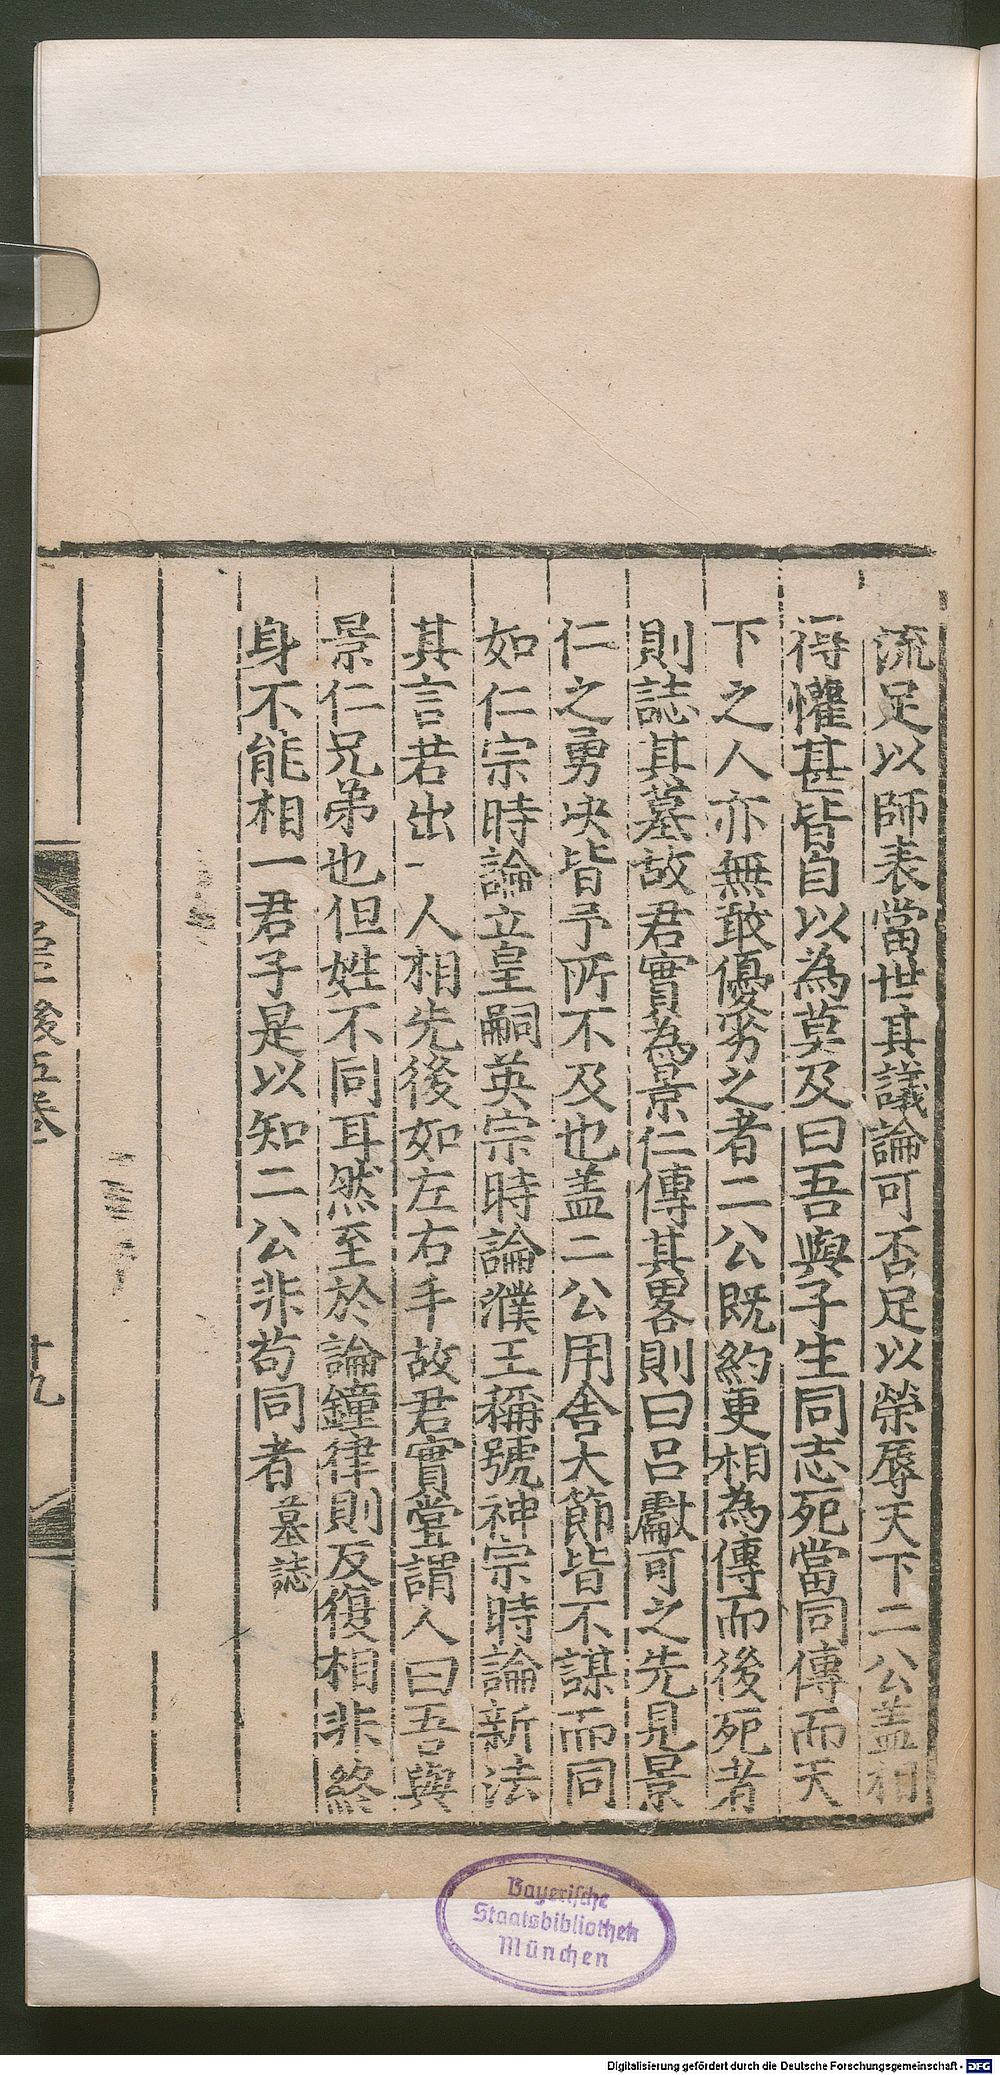 流足以師表當世其議論可否足以榮辱天下二公盖相
得懽甚皆自以為莫及曰吾與子生同志死當同傳而天
下之人亦無敢優劣之者二公既約更相為傳而後死者
則誌其墓故君實為景仁傳其畧則曰呂獻可之先見景
仁之勇决皆予所不及也盖二公用舍大節皆不謀而同
如仁宗時論立皇嗣英宗時論濮王稱號神宗時論新法
其言若出一人相先後如左右手故君實甞謂人曰吾與
景仁兄弟也但姓不同耳然至於論鐘律則反復相非終
身不能相一君子是以知二公非苟同者墓誌
後五卷
十九
Bayerische
Staatsbibliothek
München
Digitalisierung gefördert durch die Deutsche Forschungsgemeinschaft - DFG